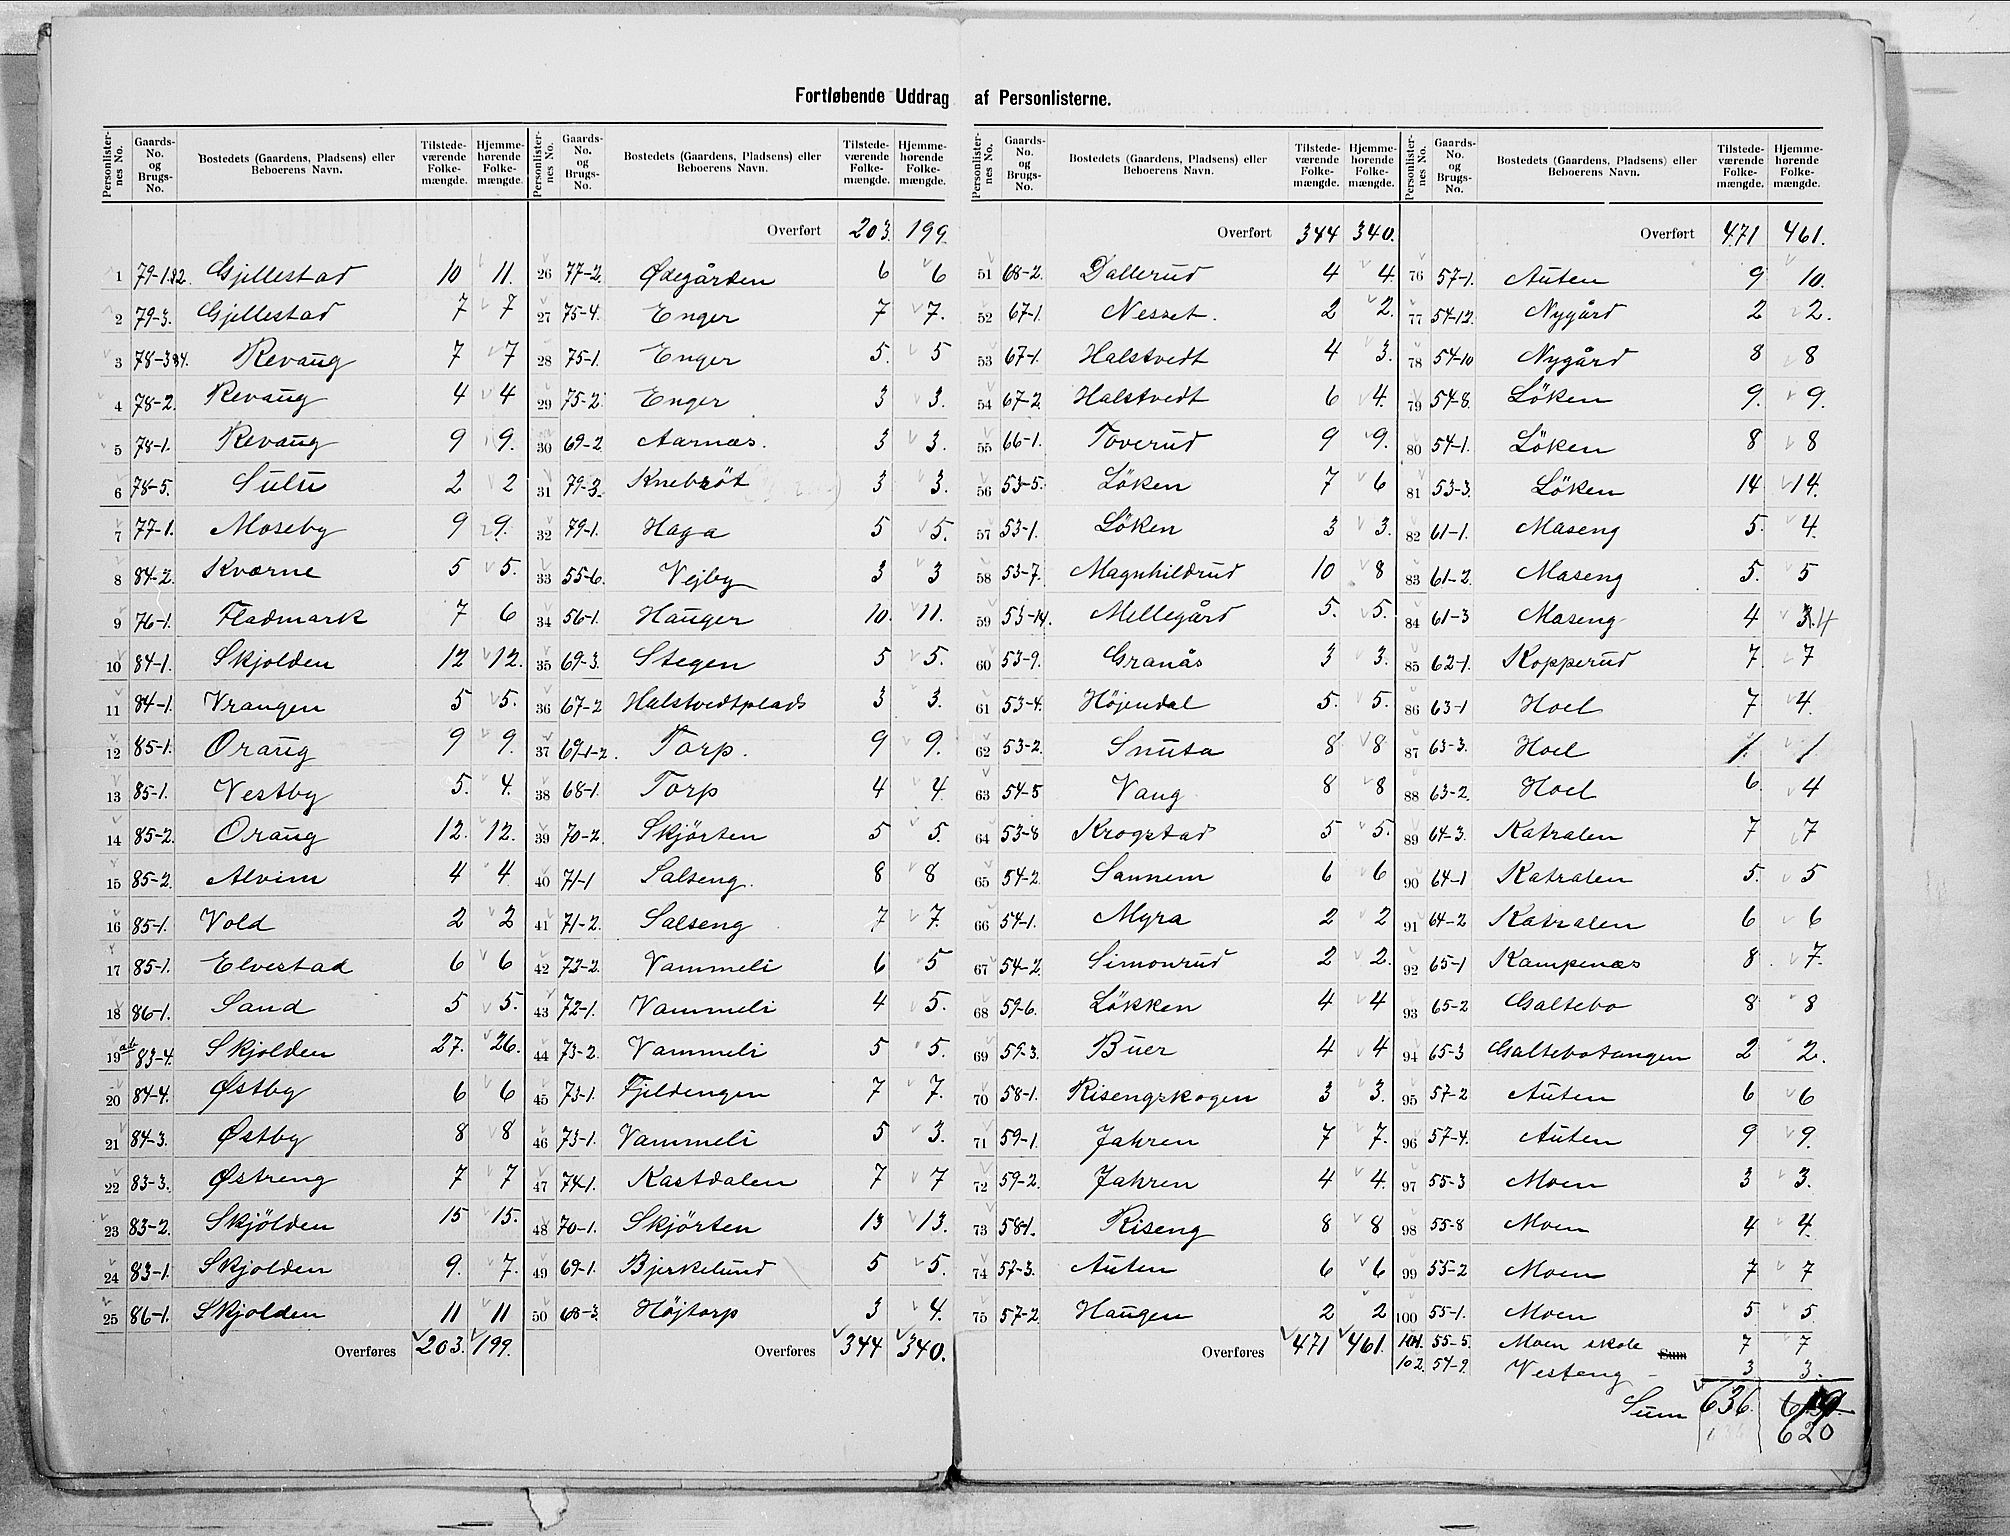 Fortløbende Uddrag af Personlisterne.
Personlisternes No. Gaards-No. og Brugs-No. Bostedets (Gaardens, Pladsens) eller Beboerens Navn. Tilstedeværende Folkemængde. Hjemmehørende Folkemængde.
1 79-1&2. Gjellestad 10 11.
2 79-3. Gjellestad 7 7
3 78-3&4. Revaug 7 7
4 78-2. Revaug 4 4
5 78-1. Revaug 9 9.
6 78-5. Sulu 2 2
7 77-1. Moseby 9 9.
8 84-2. Kværne 5 5.
9 76-1. Fladmark 7 6
10 84-1. Skjolden 12 12.
11 84-1. Vrangen 5 5.
12 85-1. Oraug 9 9.
13 85-1. Vestby 5. 4.
14 85-2. Oraug 12. 12.
15 85-2. Alvim 4 4
16 85-1. Vold 2 2
17 85-1. Elvestad 6 6
18 86-1. Sand 5 5.
19 ab 83-4. Skjolden 27. 26.
20 84-4. Østby 6 6
21 84-3. Østby 8 8
22 83-3. Østreng 7 7
23 83-2. Skjölden 15 15.
24 83-1. Skjolden 9. 7.
25 86-1. Skjolden 11 11
Overføres 203. 199.
Personlisternes No. Gaards-No. og Brugs-No. Bostedets (Gaardens, Pladsens) eller Beboerens Navn. Tilstedeværende Folkemængde. Hjemmehørende Folkemængde.
Overført 203. 199.
26 77-2. Ødegården 6 6
27 75-4. Enger 7 7.
28 75-1. Enger 5. 5
29 75-2. Enger 3 3.
30 69-2 Aarnæs. 3 3.
31 79-3. Knebröt 3 3.
32 79-1. Haga 5 5.
33 55-6. Vejby 3 3
34 56-1. Hauger 10. 11.
35 69-3. Stegen 5 5.
36 67-2 Halstvedtplads 3 3.
37 69-1-2. Torp. 9 9.
38 68-1. Torp 4 4
39 70-2. Skjörten 5 5.
40 71-1 Salseng. 8 8
41 71-2. Salseng 7 7.
42 73-2. Vammeli 6 5
43 72-1. Vammeli 4 5.
44 73-2. Vammeli 5 5.
45 73-1. Fjeldengen 7 7.
46 73-1. Vammeli 5 3.
47 74-1. Kastdalen 7 7
48 70-1. Skjörten 13 13.
49 69-1. Bjerkelund 5 5.
50 68-3. Höjtorp 3 4.
Overføres 344 340.
Personlisternes No. Gaards-No. og Brugs-No. Bostedets (Gaardens, Pladsens) eller Beboerens Navn. Tilstedeværende Folkemængde. Hjemmehørende Folkemængde.
Overført 344 340.
51 68-2. Dallerud 4 4.
52 67-1. Nesset. 2 2.
53 67-1. Halstvedt 4 3.
54 67-2. Halstvedt 6 4.
55 66-1. Toverud 9 9.
56 53-5. Löken 7 6
57 53-1. Löken 3 3.
58 53-7. Magnhildrud 10 8
59 53-14. Mellegård 5. 5.
60 53-9. Granås 3 3.
61 53-4. Höjendal 5. 5.
62 53-2. Snuta 8 8
63 54-5 Vang 8 8
64 53-8 Krogstad 5 5.
65 54-2. Sannem 6 6
66 54-1. Myra 2 2
67 54-2. Simonrud 2 2.
68 59-6. Lökken 4 4
69 59-3. Buer 4 4
70 58-1. Risengskogen 3 3.
71 59-1. Jahren 7 7.
72 59-2. Jahren 4 4.
73 58-1. Riseng 8 8
74 57-3. Auten 6 6
75 57-2. Haugen 2 2
Overføres 471 461.
Personlisternes No. Gaards-No. og Brugs-No. Bostedets (Gaardens, Pladsens) eller Beboerens Navn. Tilstedeværende Folkemængde. Hjemmehørende Folkemængde.
Overført 471 461.
76 57-1. Auten 9 10.
77 54-12. Nygård 2 2.
78 54-10 Nygård 8 8
79 54-8. Löken 9. 9.
80 54-1. Löken 8 8
81 53-3. Löken 14 14.
82 61-1. Maseng 5. 4.
83 61-2. Maseng 5. 5
84 61-3 Maseng 4 3. 4
85 62-1. Kopperud 7. 7
86 63-1 Hoel 7 4.
87 63-3. Hoel 1. 1.
88 63-2. Hoel 6. 4
89 64-3. Katralen 7 7
90 64-1 Katralen 5. 5
91 64-2 Katralen 6 6
92 65-1 Kampenæs 8. 7.
93 65-2 Galtebo 8 8
94 65-3 Galtebotangen 2 2.
95 57-2 Auten 6 6
96 57-4. Auten 9 9.
97 55-3 Moen 3 3.
98 55-8 Moen 4 4.
99 55-2 Moen 7 7
100 55-1. Moen 5 5.
101. 55-5. Moen skole Sum 7 7
102. 54-9. Vesteng - 3 3.
Sum 636. 619.
620